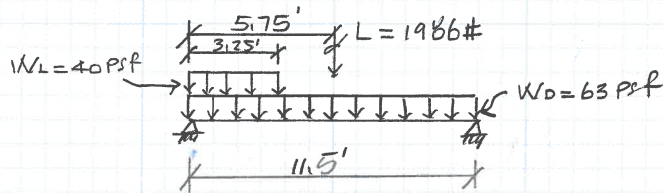 5.75'
3.25'
L = 1986#
WL = 40 PSF
WD = 63 PSF
11.5'